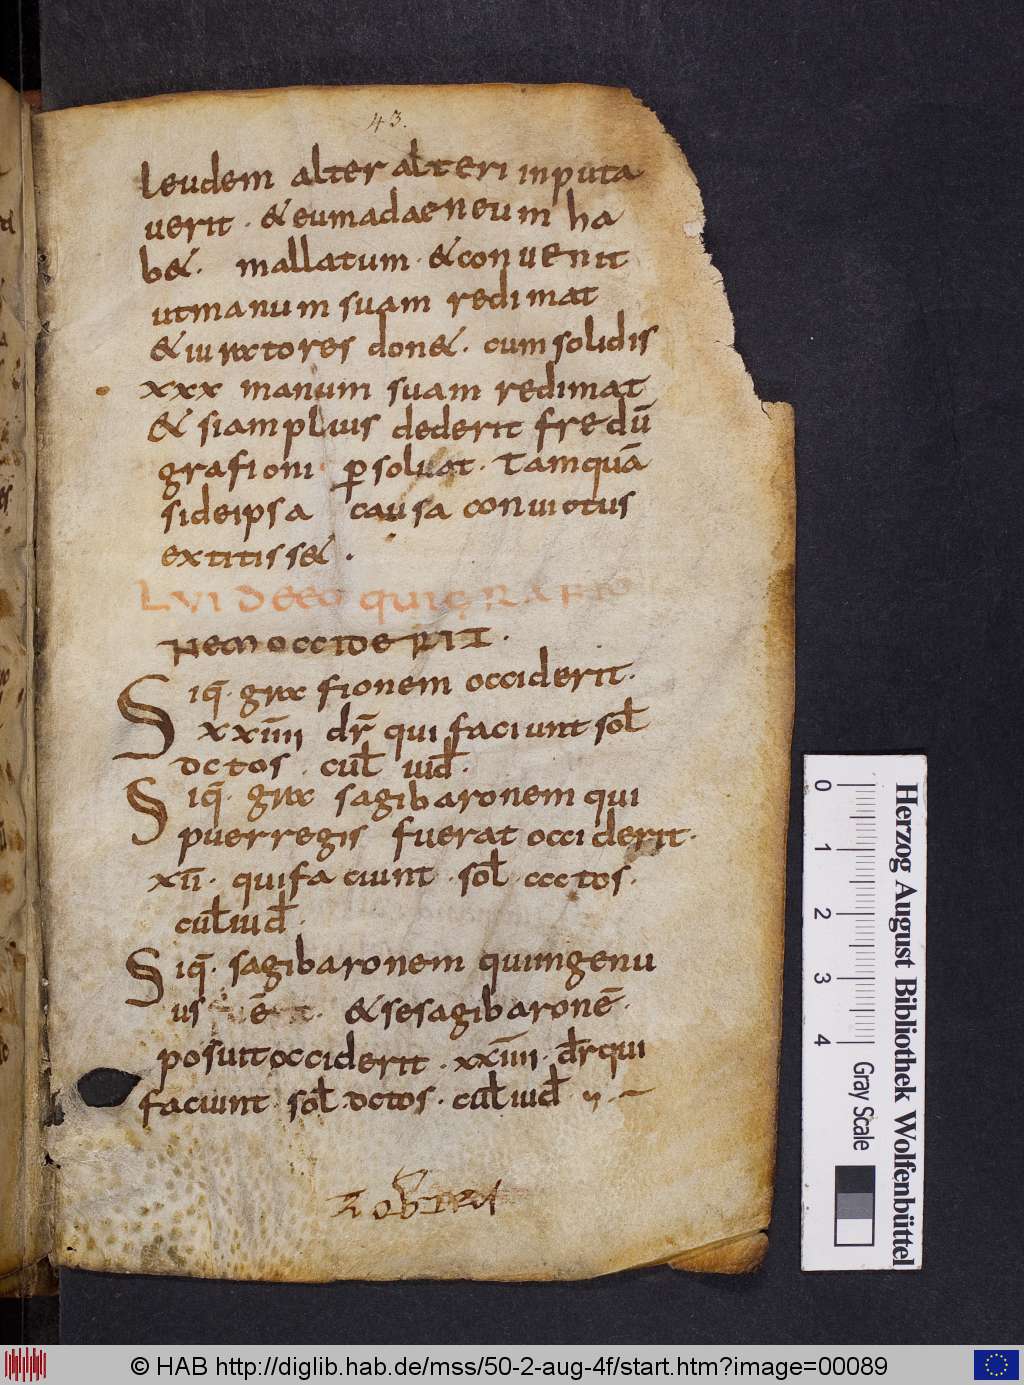 43.
leudem alter alteri inputa
uerit · & eum adaeneum ha
b&· mallatum · & conuenit
ut manum suam redimat
& iuratores don&· cum solidis
xxx manum suam redimat
& si amplius dederit fredū
grafioni p̱soluat · Tamquā
si de ipsa causa conuictus
extitiss& ·
LVI DE EO QUI GRAFIO
NEM OCCIDERIT ·
Siq̄· grafionem occiderit·
xxīīīī dr̄ qui faciunt sol̄
dctos · cul̄ iud̄·
Siq̄· grax sagibaronem qui
puer regis fuerat occiderit·
xīī· qui faciunt · sol̄ · ccctos·
cul̄ iud̄·
Siq̄· sagibaronem qui ingenu
us ē · & se sagibaronē·
posuit occiderit · xxīīīī · dr̄ qui
faciunt · sol̄· dctos · cul̄ iud̄
Herzog August Bibliothek Wolfenbüttel
0 1 2 3 4
Gray Scale
© HAB http://diglib.hab.de/mss/50-2-aug-4f/start.htm?image=00089